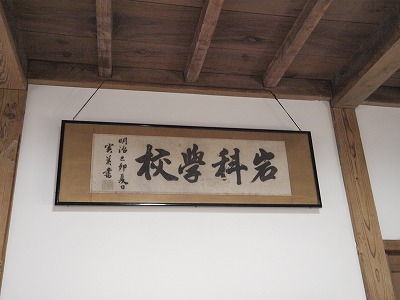 岩科學校
明治己卯夏日
實美書